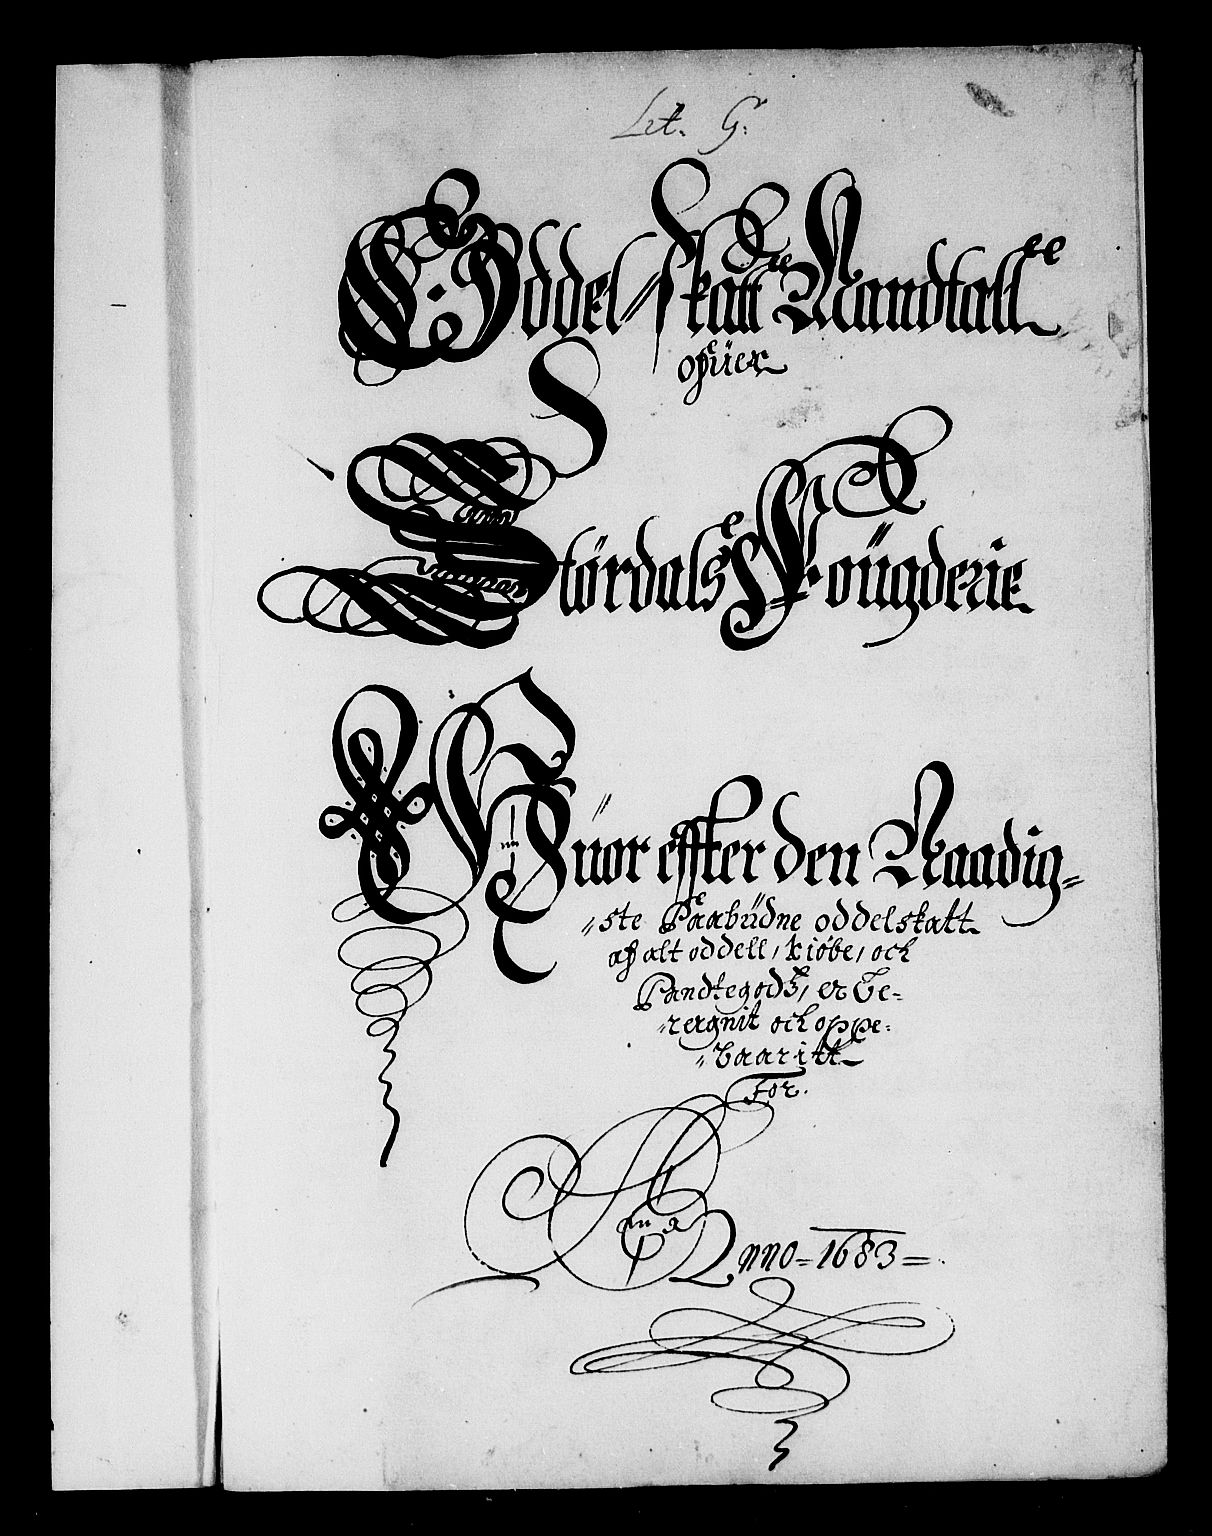 Lit. G:
Oddel skatte Mandtall
ofüer
Størdals Fougderie
Hüor effter den Naadig-
ste Paabüdne oddelskatt
af alt oddell, kiøbe, och
Pandtegodtz, er be-
reregnit och oppe-
baaritt
For.
Anno 1683